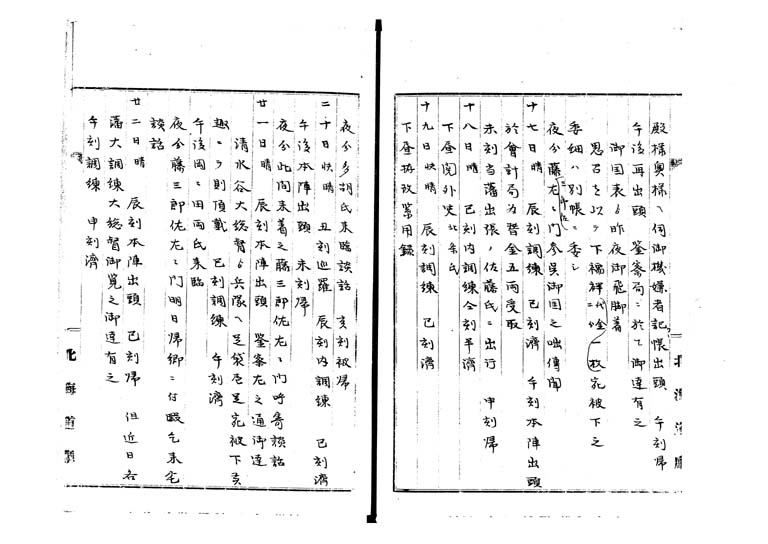 殿様奥様ヘ伺御機嫌者記帳出頭 午刻帰
午後再出頭 鉴察局ニ於て御達有之
御国表ゟ昨夜御飛脚着
思召を以テ下襦袢代金一枚宛被下之
委細ハ別帳ニ委シ
夜分藤左ヱ門参呉御国之咄傳聞
十七日晴 辰刻調練 已刻濟 午刻本陣出頭
於會計局為替金五両受取
未刻当藩出張、佐藤氏ニ出行 申刻帰
十八日晴 已刻内調練今刻半濟
下昼関外史
十九日快晴 辰刻調練 已刻濟
下昼拱攷常用録
夜分多胡氏来臨談話 亥刻被帰
二十日快晴 丑刻巡羅 辰刻内調練 已刻濟
午後本陣出頭 未刻帰
夜分此間来着之藤三郎佐左ヱ門呼寄談話
廿一日晴 辰刻本陣出頭 鉴察左之通御達
清水谷大総督ゟ兵隊ヘ足袋壱足宛被下員
趣ニ付則頂戴 已刻調練 午刻濟
午後岡ニ田両氏来臨
夜分藤三郎佐左ヱ門明日帰郷ニ付暇乞来宅
談話
廿二日晴 辰刻本陣出頭 已刻帰 但近日各
藩大調練大総督御覧之御達有之
午刻調練 申刻濟
北海道廳
北海道廳